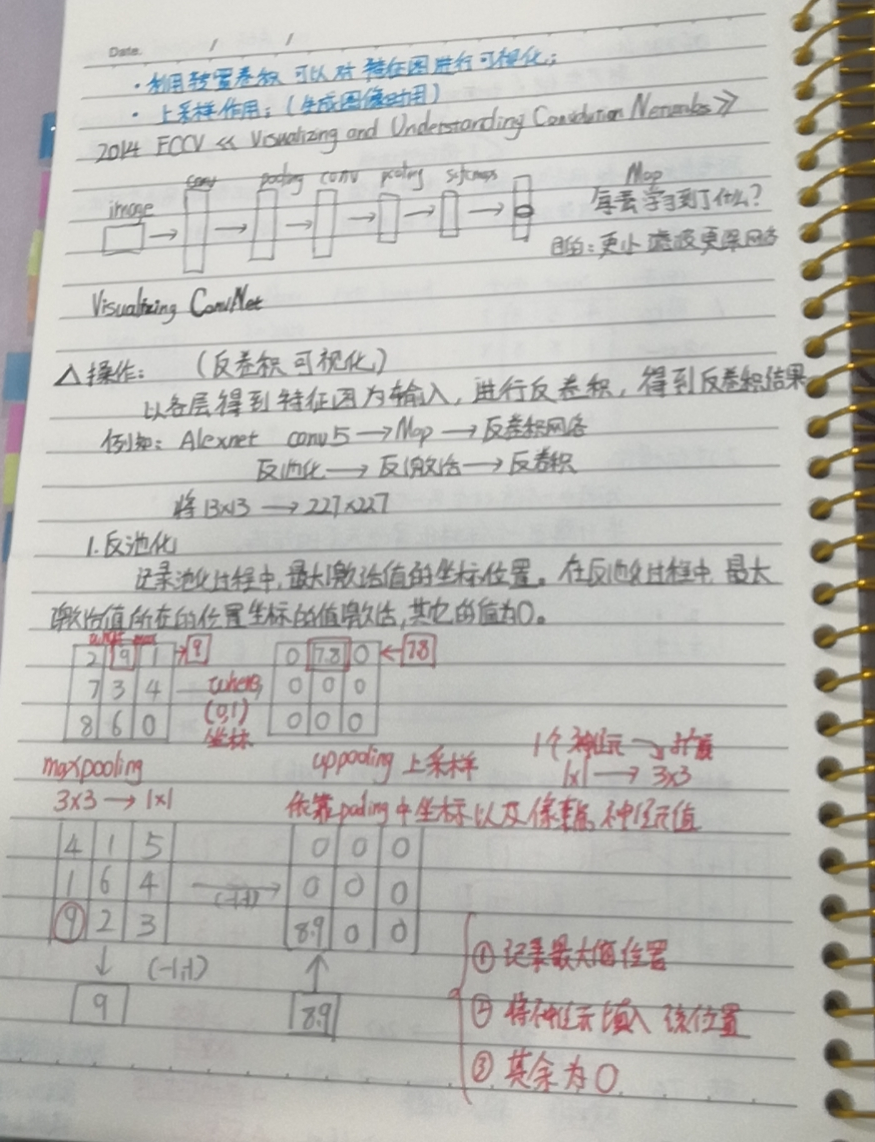 Date. / /
·利用转置卷积可以对特征图进行可视化;
·上采样作用:(生成图像时用)
2014 ECCV << Visualizing and Understanding Convolution Networks >>
conv pooling conv pooling softmax Map
image 每层学习到了什么?
目的:更小 滤波更深网络
Visualizing ConvNet
△操作: (反卷积可视化)
以各层得到特征图为输入,进行反卷积,得到反卷积结果
例如: Alexnet conv5 → Map → 反卷积网络
反池化 → 反激活 → 反卷积
将13×13 → 227×227
1.反池化
记录池化过程中,最大激活值的坐标位置。在反池化过程中,最大
激活值所在的位置坐标的值激活,其它的值为0。
2 9 1 → 9 0 7.8 0 ← 7.8
7 3 4 where, 0 0 0
8 6 0 (0,1) 0 0 0
坐标
maxpooling uppooling 上采样 1个神经元 → 扩展
3×3 → 1×1 1×1 → 3×3
依靠pooling中坐标以及 神经元值
4 1 5 0 0 0
1 6 4 → 0 0 0
9 2 3 8.9 0 0
↓ (-1,-1) ↑
9 8.9
① 记录最大值位置
② 将神经元填入该位置
③ 其余为0